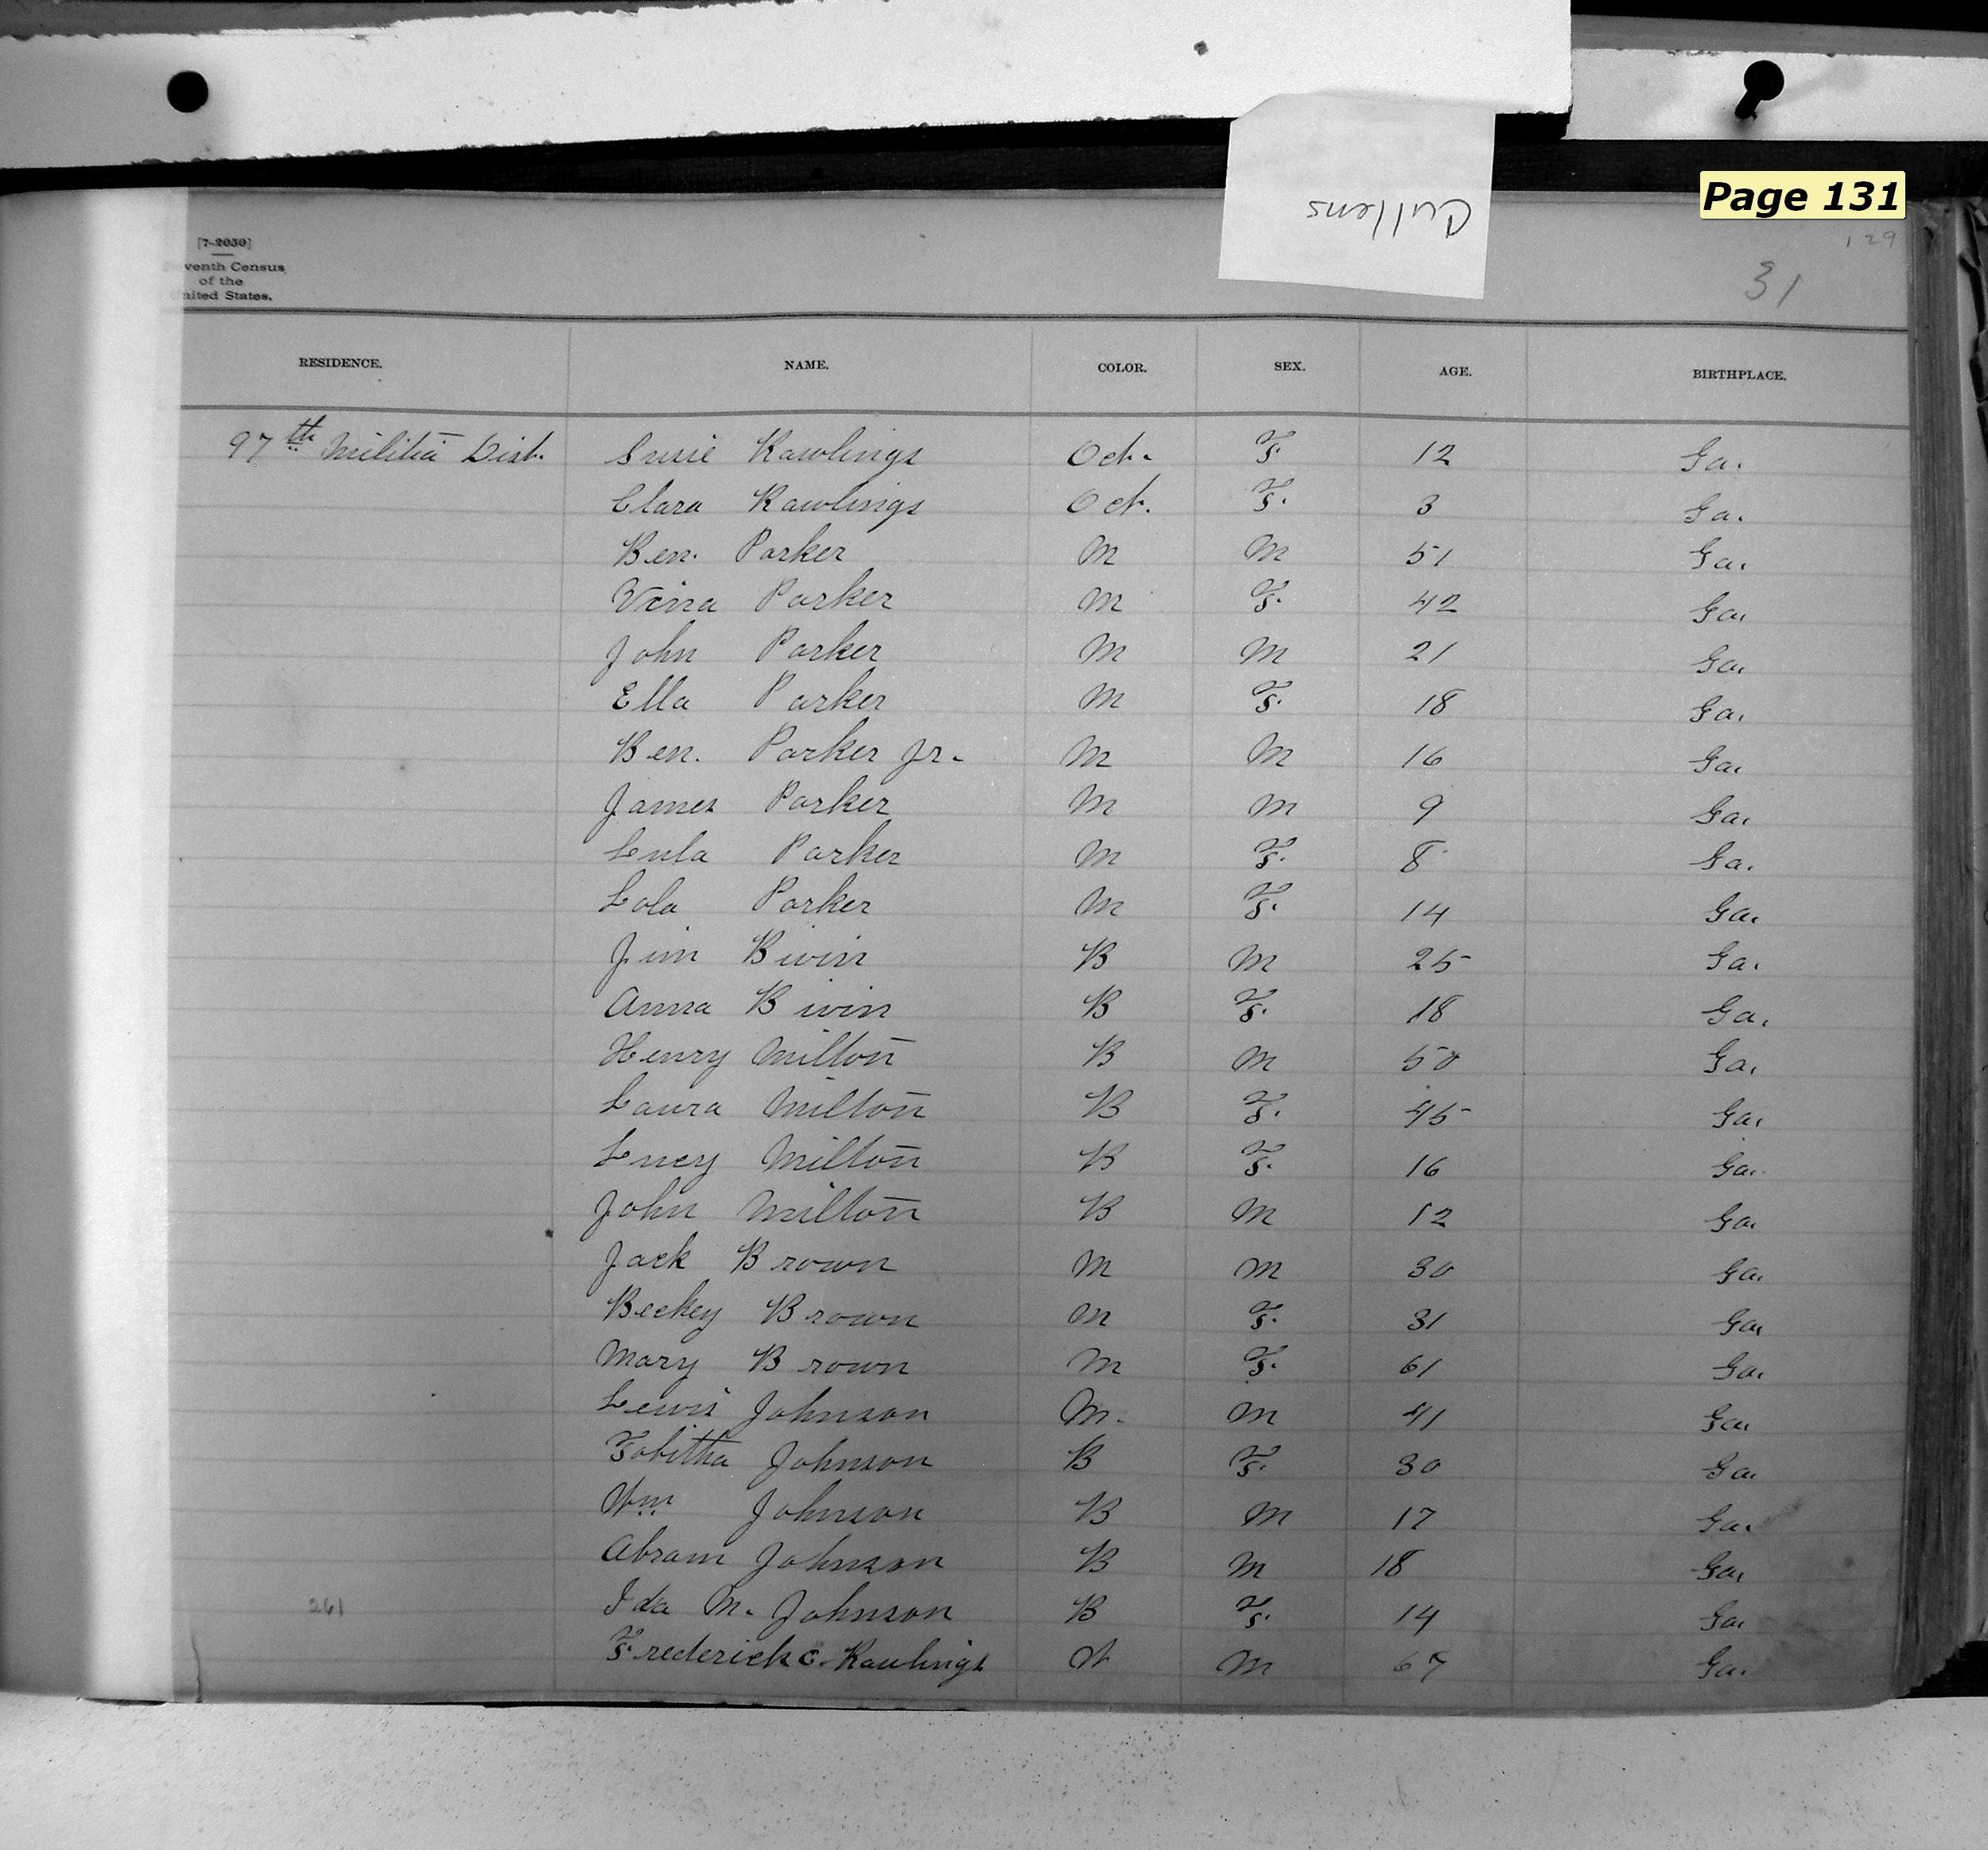 Cullens
Page 131
129
31
[7-2050]
venth Census
of the
nited States.
RESIDENCE. NAME. COLOR. SEX. AGE. BIRTHPLACE.
97th Militia Dist. Susie Rawlings Oct. F. 12 Ga.
Clara Rawlings Oct. F. 3 Ga.
Ben. Parker M M 51 Ga.
Vina Parker M F. 42 Ga.
John Parker M M 21 Ga.
Ella Parker M F. 18 Ga.
Ben. Parker Jr. M M 16 Ga.
James Parker M M 9 Ga.
Lula Parker M F. 8 Ga.
Lola Parker M F. 14 Ga.
Jim Bivin B M 25 Ga.
Anna Bivin B F. 18 Ga.
Henry Milton B M 50 Ga.
Laura Milton B F. 45 Ga.
Lucy Milton B F. 16 Ga.
John Milton B M 12 Ga.
Jack Brown M M 30 Ga.
Beckey Brown M F. 31 Ga.
Mary Brown M F. 61 Ga.
Lewis Johnson M. M 41 Ga.
Tobitha Johnson B F. 30 Ga.
Wm Johnson B M 17 Ga.
Abram Johnson B M 18 Ga.
261 Ida M. Johnson B F. 14 Ga.
Frederick C. Rawlings W M 67 Ga.